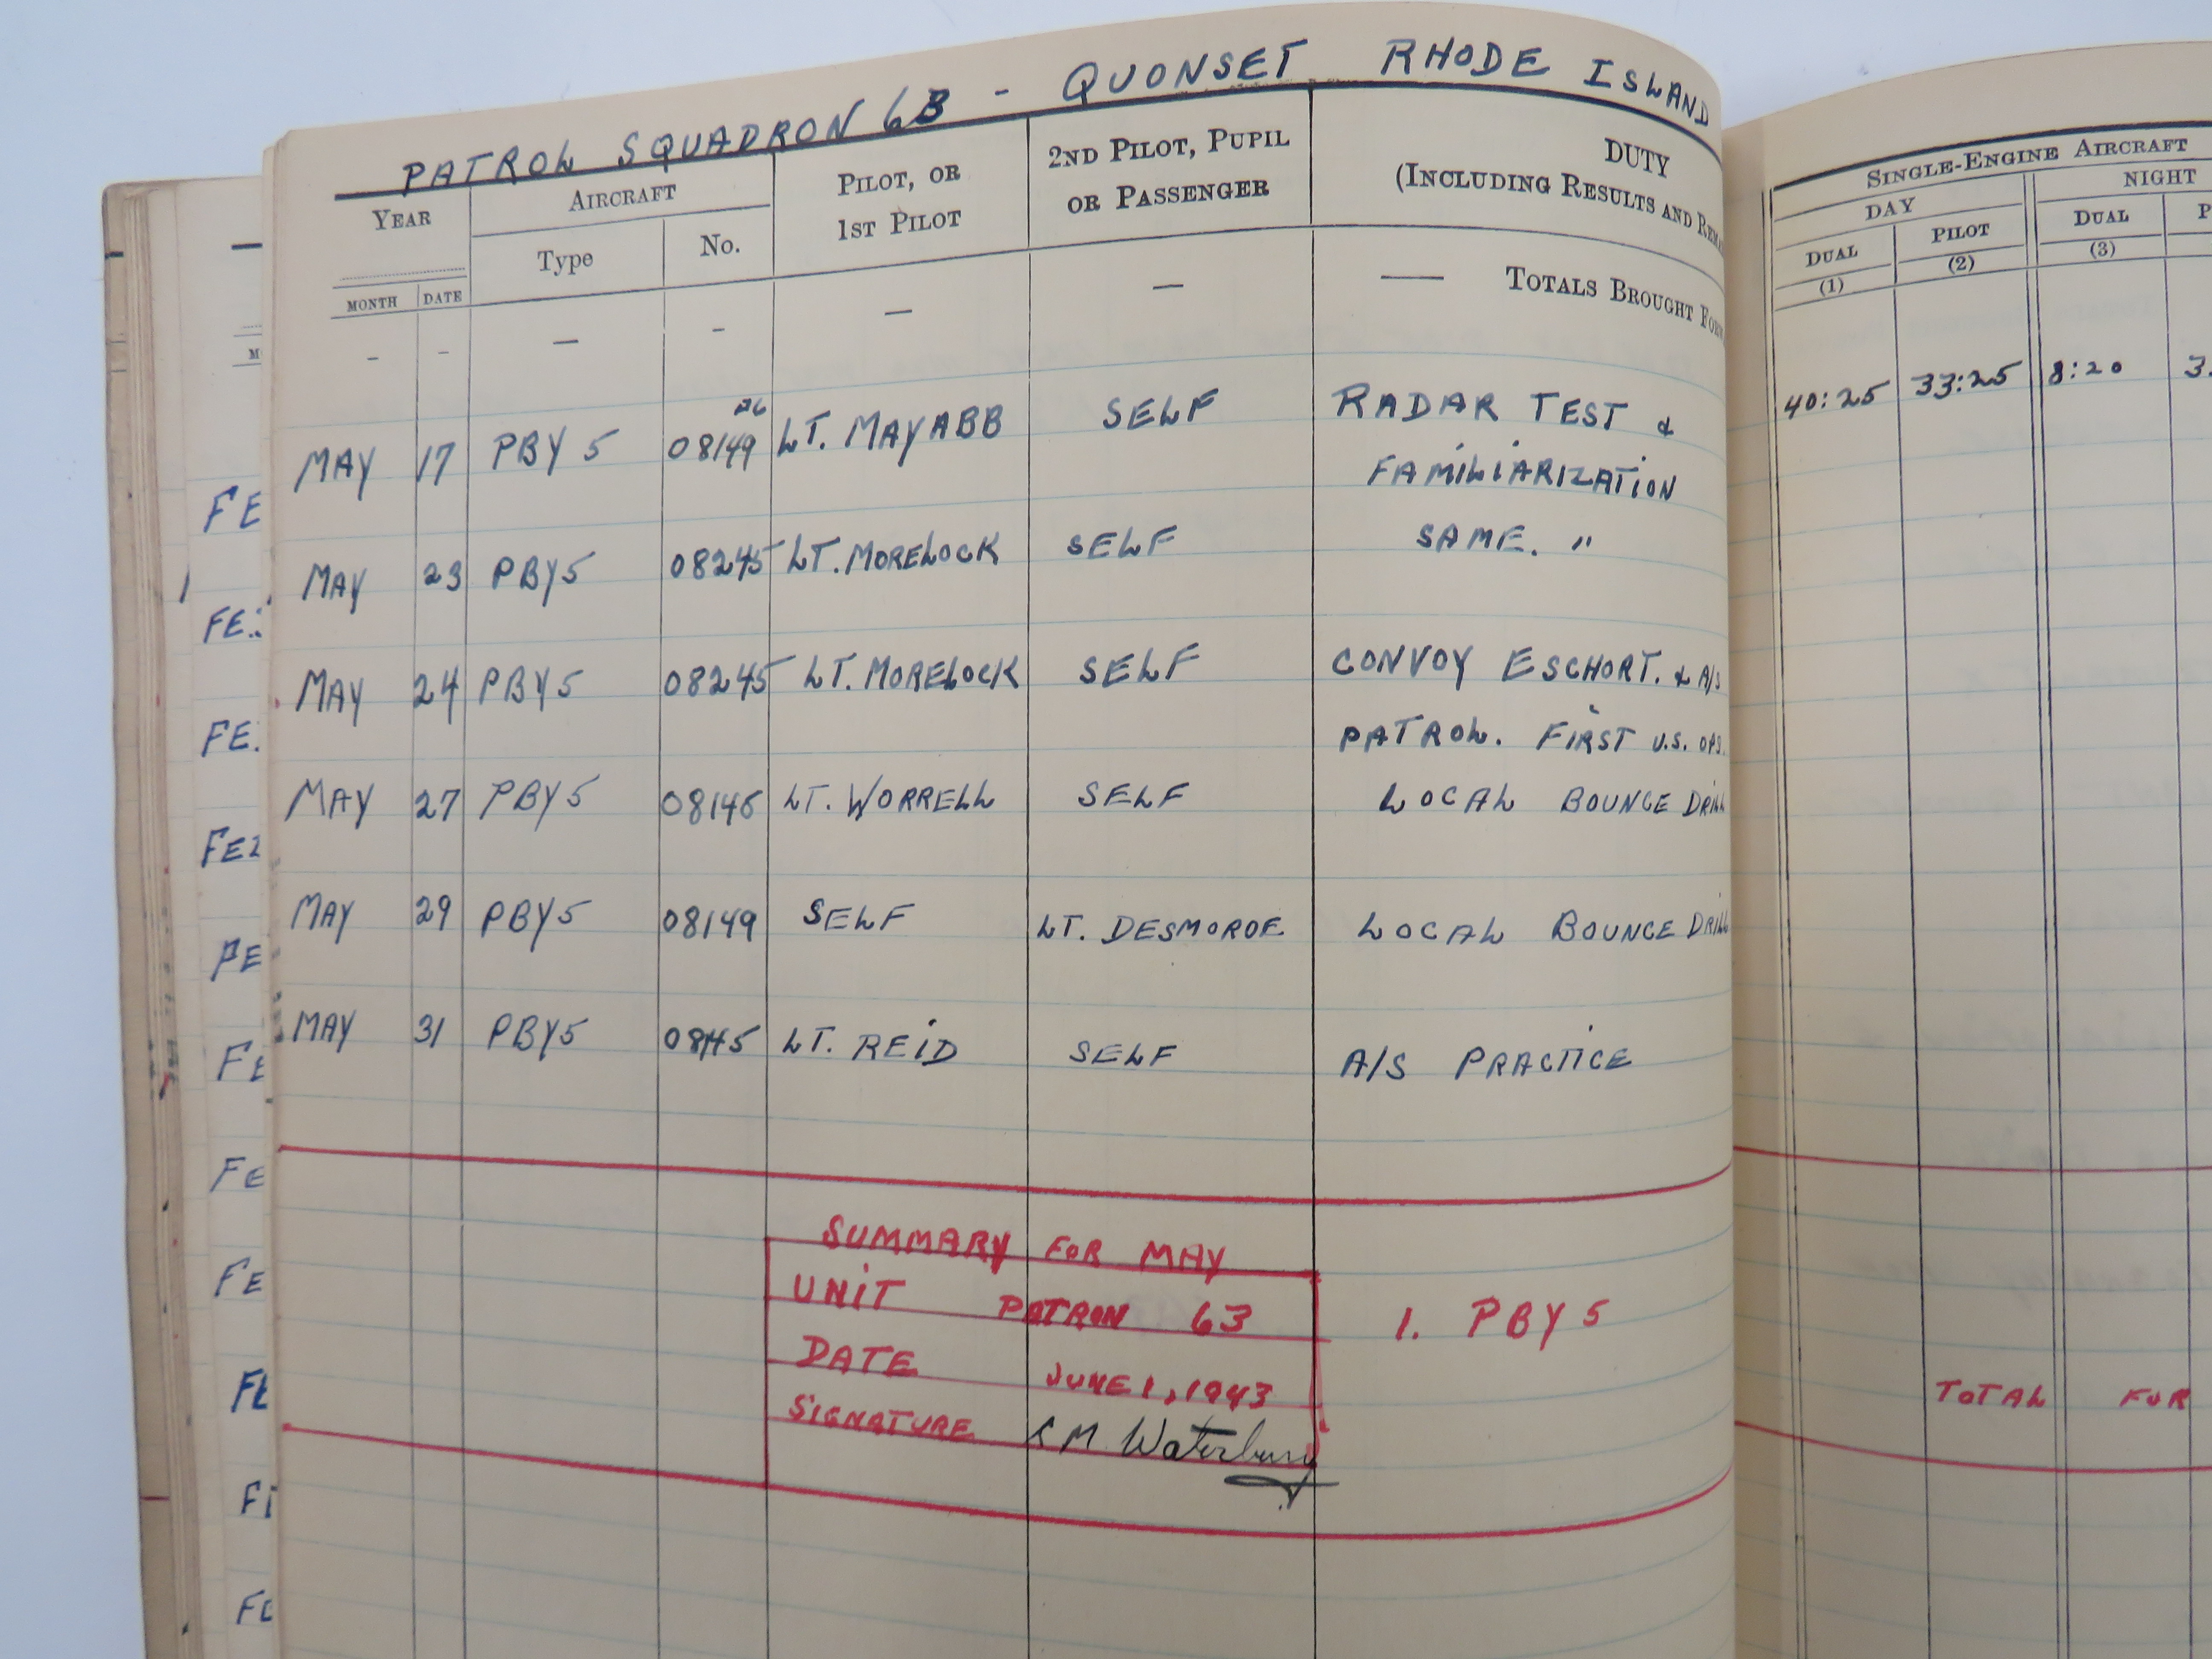 PATROL SQUADRON 63 - QUONSET RHODE ISLAND
YEAR AIRCRAFT PILOT, OR 2ND PILOT, PUPIL DUTY
Type No. 1ST PILOT OR PASSENGER (INCLUDING RESULTS AND REM
MONTH DATE
- - — - — — — TOTALS BROUGHT FOR
MAY 17 PBY 5 08149 LT. MAYABB SELF RADAR TEST &
FAMILIARIZATION
MAY 23 PBY5 08245 LT. MORELOCK SELF SAME. "
MAY 24 PBY5 08245 LT. MORELOCK SELF CONVOY ESCHORT. & A/S
PATROL. FIRST U.S. OPS.
MAY 27 PBY5 08146 LT. WORRELL SELF LOCAL BOUNCE DRILL
MAY 29 PBY5 08149 SELF LT. LOCAL BOUNCE DRILL
MAY 31 PBY5 LT. REID SELF A/S PRACTICE
SUMMARY FOR MAY
UNIT PATRON 63 1. PBY 5
DATE JUNE 1, 1943
SIGNATURE M Waterbury
SINGLE-ENGINE AIRCRAFT
DAY NIGHT
DUAL PILOT DUAL P
(1) (2) (3)
40:25 33:25 8:20 3.
TOTAL FOR
FE
FE
FE.
FE
FE
FE
FE
FE
FE